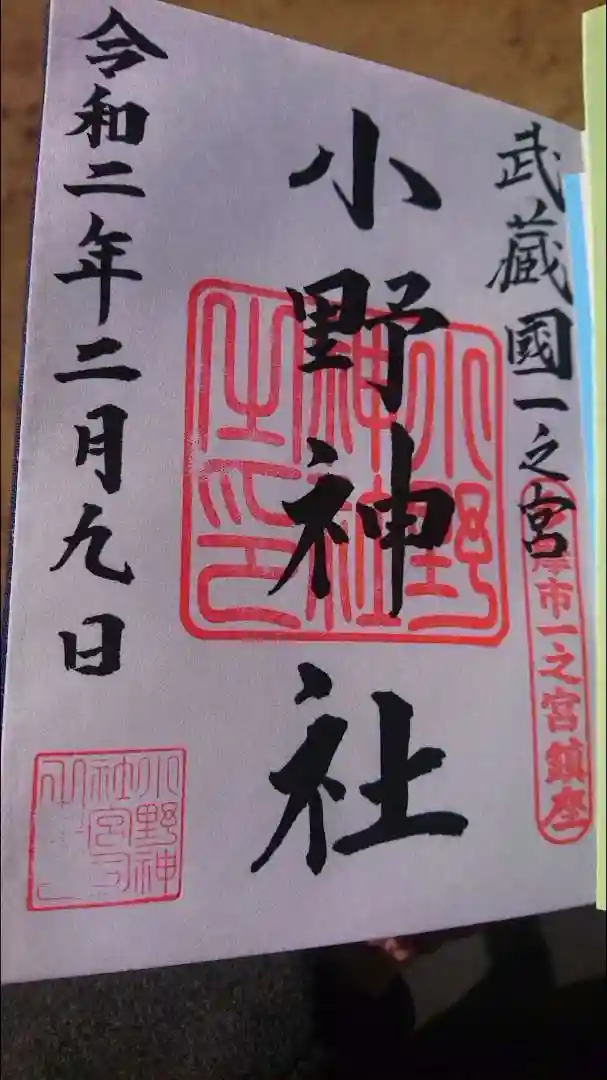 武蔵國一之宮
摩市一之宮鎮座
小野神社
小野
神社
之印
令和二年二月九日
小野神
社宮司